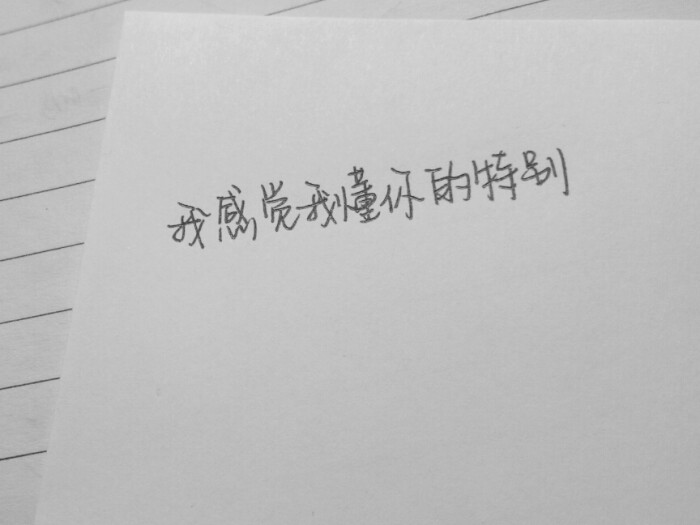 我感觉我懂你的特别